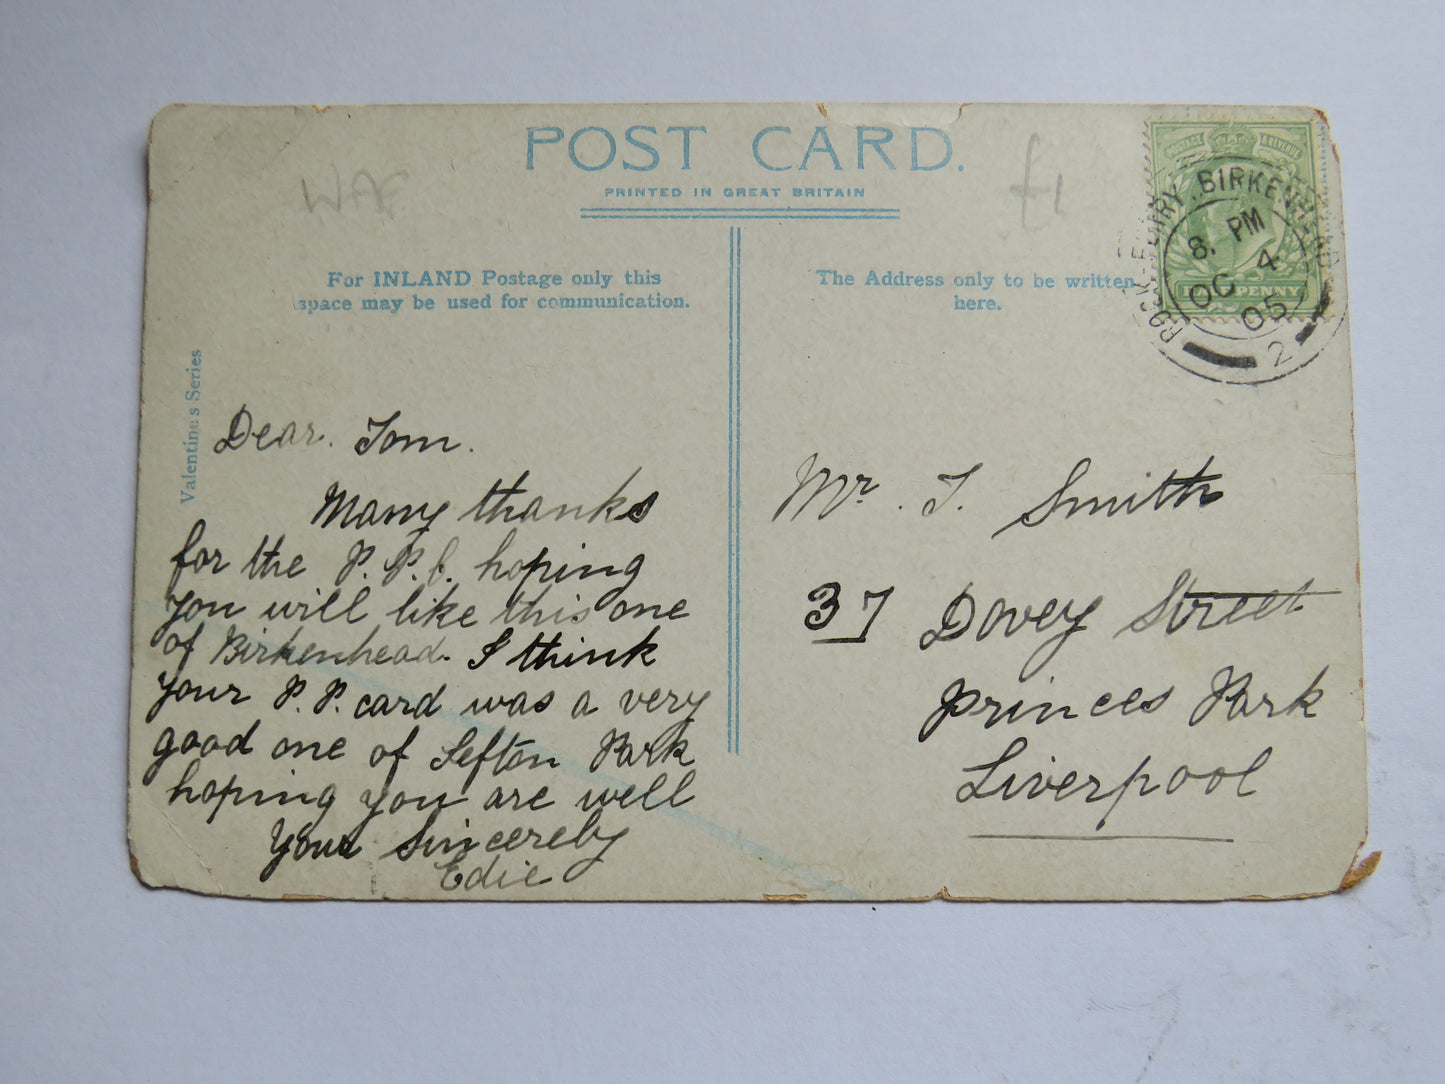 POST CARD.
PRINTED IN GREAT BRITAIN
WAF
£1
For INLAND Postage only this
space may be used for communication.
The Address only to be written
here.
ROCK FERRY. BIRKENHEAD
8. PM
OC 4
05
2
POSTAGE REVENUE
HALF PENNY
Valentines Series
Dear. Tom.
Many thanks
for the P. P. C. hoping
you will like this one
of Birkenhead. I think
your P. P. card was a very
good one of Sefton Park
hoping you are well
Your Sincerely
Edie
Mr. T. Smith
37 Dovey Street
Princes Park
Liverpool